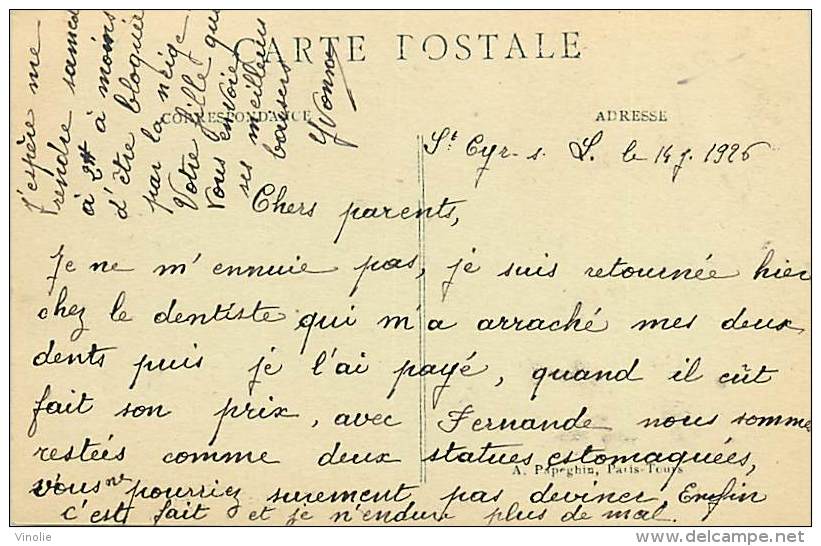 CARTE POSTALE
CORRESPONDANCE
ADRESSE
St Cyr s. L. le 14 j. 1926
Chers parents,
Je ne m'ennuie pas, je suis retournée hier
chez le dentiste qui m'a arraché mes deux
dents puis je l'ai payé, quand il eût
fait son prix, avec Fernande nous sommes
restées comme deux statues estomaquées,
vous ne pourriez surement pas deviner. Enfin
c'est fait et je n'endure plus de mal.
A. Papeghin, Paris-Tours
J'espère me
rendre samedi
à 2H à moins
d'être bloquée
par la neige
Votre fille qui
Vous envoie
ses meilleurs
baisers
Yvonne
Vinolie
delcampe.net